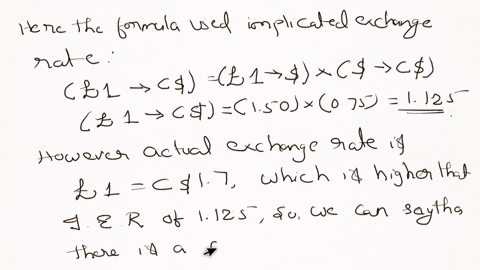 Here the formula used implicated exchange
rate:
(£1 → C$) = (£1 → $) × ($ → C$)
(£1 → C$) = (1.50) × (0.75) = 1.125
However actual exchange rate is
£1 = C$1.7, which is higher that
I.E.R of 1.125, so, we can say tha
there is a